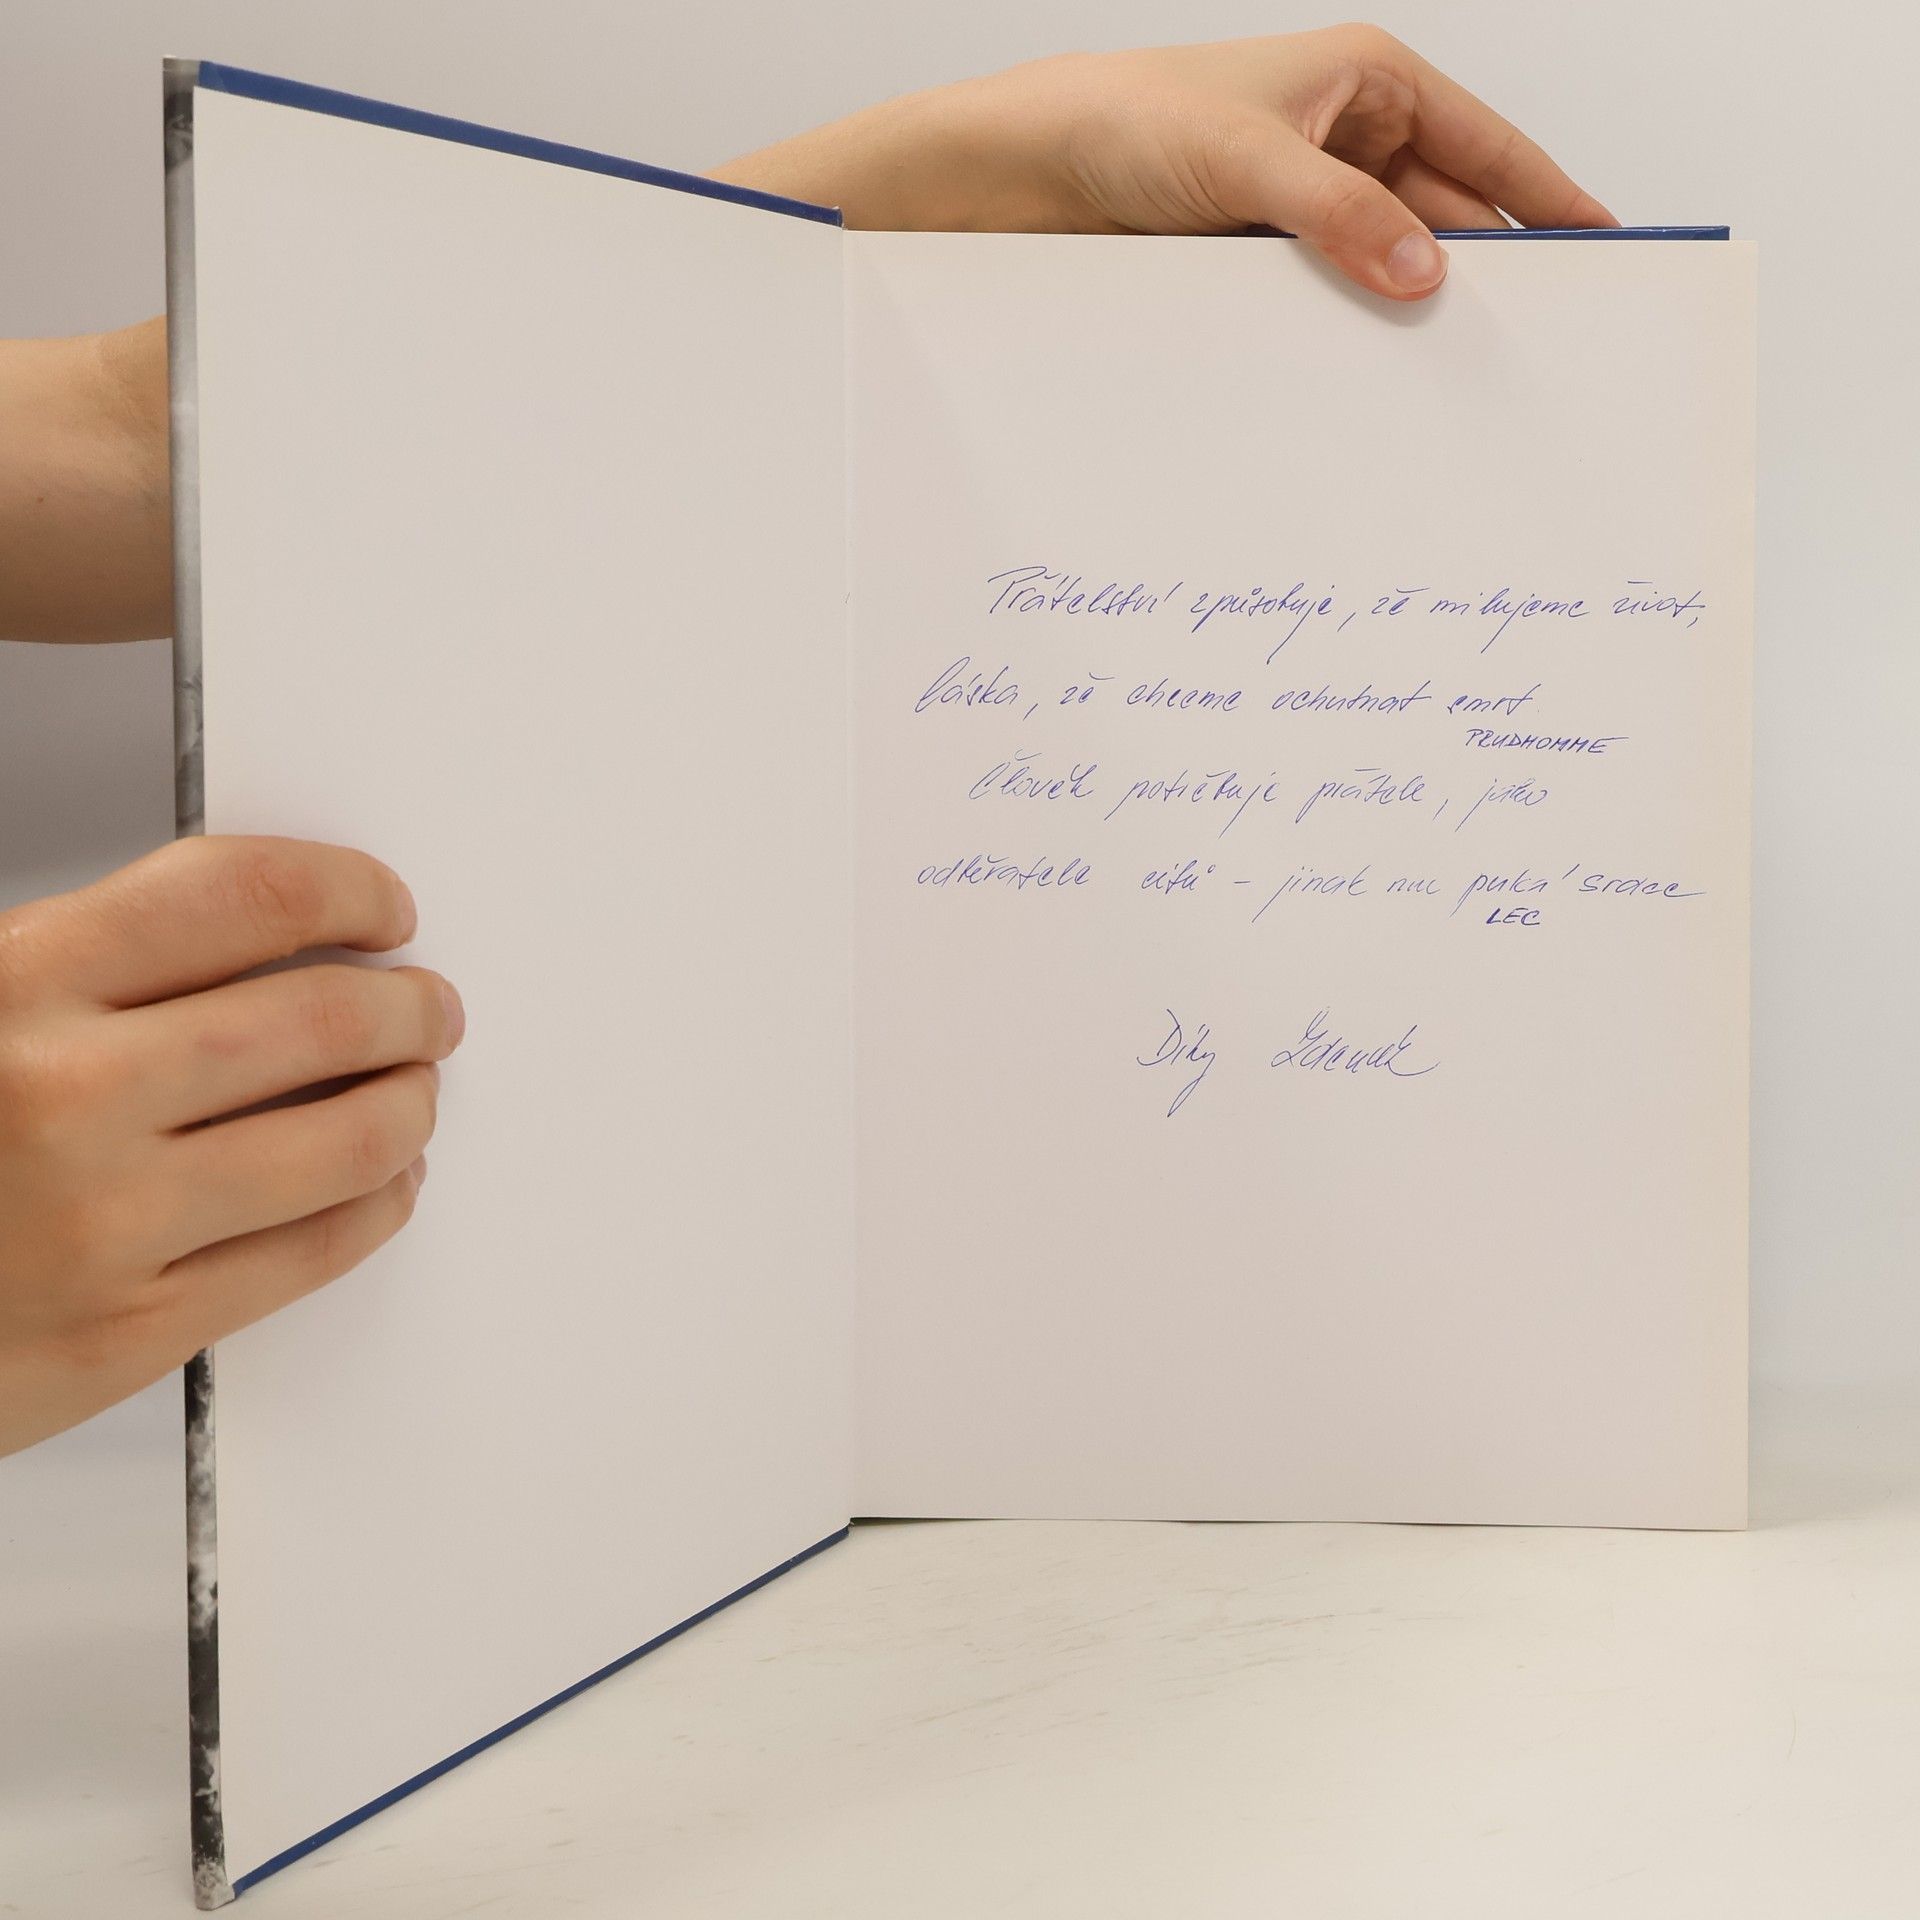 Přátelství způsobuje, že milujeme život,
láska, že chceme ochutnat smrt.
PRUDHOMME
Člověk potřebuje přátele, jako
odběratele citů - jinak mu puká srdce
LEC
Díky Zdeněk